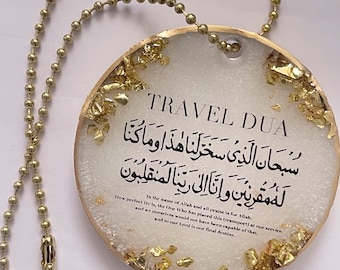 TRAVEL DUA
سُبْحَانَ الَّذِي سَخَّرَ لَنَا هَٰذَا وَمَا كُنَّا
لَهُ مُقْرِنِينَ وَإِنَّا إِلَىٰ رَبِّنَا لَمُنْقَلِبُونَ
In the name of Allah and all praise is for Allah.
How perfect He is, the One Who has placed this (transport) at our service
and we ourselves would not have been capable of that,
and to our Lord is our final destiny.